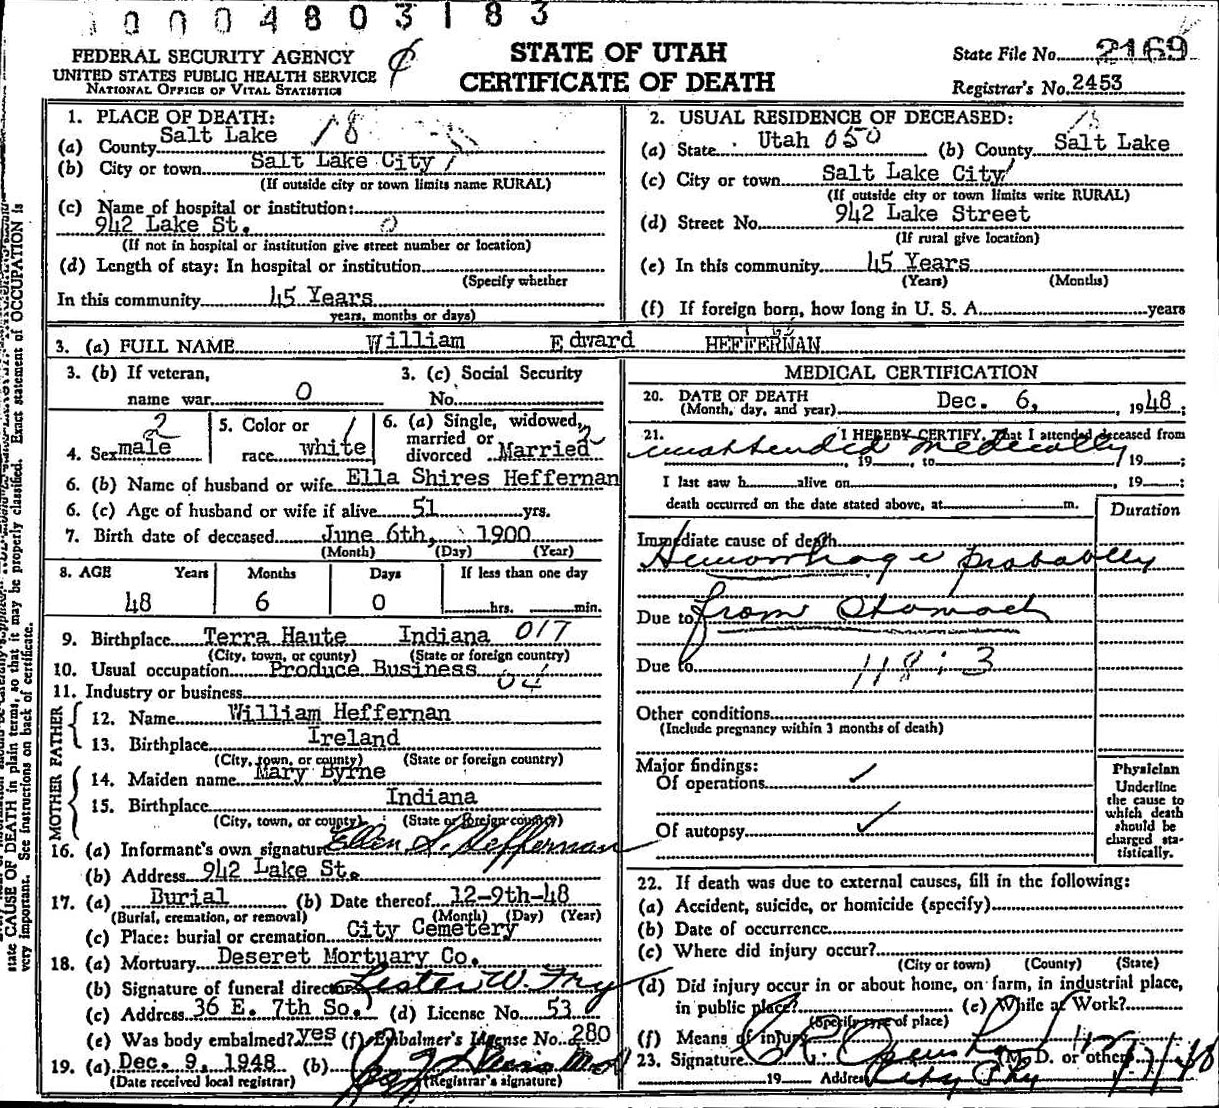 0 0 0 4 8 0 3 1 8 3
FEDERAL SECURITY AGENCY
UNITED STATES PUBLIC HEALTH SERVICE
NATIONAL OFFICE OF VITAL STATISTICS
STATE OF UTAH
CERTIFICATE OF DEATH
State File No. 2169
Registrar's No. 2453
1. PLACE OF DEATH:
(a) County Salt Lake 18
(b) City or town Salt Lake City
(If outside city or town limits name RURAL)
(c) Name of hospital or institution:
942 Lake St. 0
(If not in hospital or institution give street number or location)
(d) Length of stay: In hospital or institution
(Specify whether
In this community 45 Years
years, months or days)
2. USUAL RESIDENCE OF DECEASED:
(a) State Utah 050 (b) County Salt Lake
(c) City or town Salt Lake City
(If outside city or town limits write RURAL)
(d) Street No. 942 Lake Street
(If rural give location)
(e) In this community 45 Years
(Years) (Months)
(f) If foreign born, how long in U. S. A. years
3. (a) FULL NAME William Edward HEFFERNAN
3. (b) If veteran,
name war 0
3. (c) Social Security
No.
4. Sex male 2
5. Color or
race white 1
6. (a) Single, widowed,
married or
divorced Married 2
6. (b) Name of husband or wife Ella Shires Heffernan
6. (c) Age of husband or wife if alive 51 yrs.
7. Birth date of deceased June 6th, 1900
(Month) (Day) (Year)
8. AGE Years Months Days If less than one day
48 6 0 hrs. min.
9. Birthplace Terra Haute Indiana 017
(City, town, or county) (State or foreign country)
10. Usual occupation Produce Business
11. Industry or business 04
FATHER
12. Name William Heffernan
13. Birthplace Ireland
(City, town, or county) (State or foreign country)
MOTHER
14. Maiden name Mary Byrne
15. Birthplace Indiana
(City, town, or county) (State or foreign country)
16. (a) Informant's own signature Ellen S. Heffernan
(b) Address 942 Lake St.
17. (a) Burial (b) Date thereof 12-9th-48
(Burial, cremation, or removal) (Month) (Day) (Year)
(c) Place: burial or cremation City Cemetery
18. (a) Mortuary Deseret Mortuary Co.
(b) Signature of funeral director Lester W. Fry
(c) Address 36 E. 7th So. (d) License No. 53
(e) Was body embalmed? yes (f) Embalmer's License No. 280
19. (a) Dec. 9, 1948 (b)
(Date received local registrar) (Registrar's signature)
MEDICAL CERTIFICATION
20. DATE OF DEATH
(Month, day, and year) Dec. 6, , 1948;
21. I HEREBY CERTIFY, That I attended deceased from
unattended medically
, 19 , to , 19 ;
I last saw h alive on , 19 ;
death occurred on the date stated above, at m.
Duration
Immediate cause of death
Hemorrhage probably
Due to from stomach
Due to 118:3
Other conditions
(Include pregnancy within 3 months of death)
Major findings:
Of operations ✓
Of autopsy ✓
Physician
Underline
the cause to
which death
should be
charged sta-
tistically.
22. If death was due to external causes, fill in the following:
(a) Accident, suicide, or homicide (specify)
(b) Date of occurrence
(c) Where did injury occur?
(City or town) (County) (State)
(d) Did injury occur in or about home, on farm, in industrial place,
in public place? (e) While at Work?
(Specify type of place)
(f) Means of injury
23. Signature (M. D. or other)
19 Address City
state CAUSE OF DEATH in plain terms, so that it may be properly classified. Exact statement of OCCUPATION is
very important. See instructions on back of certificate.